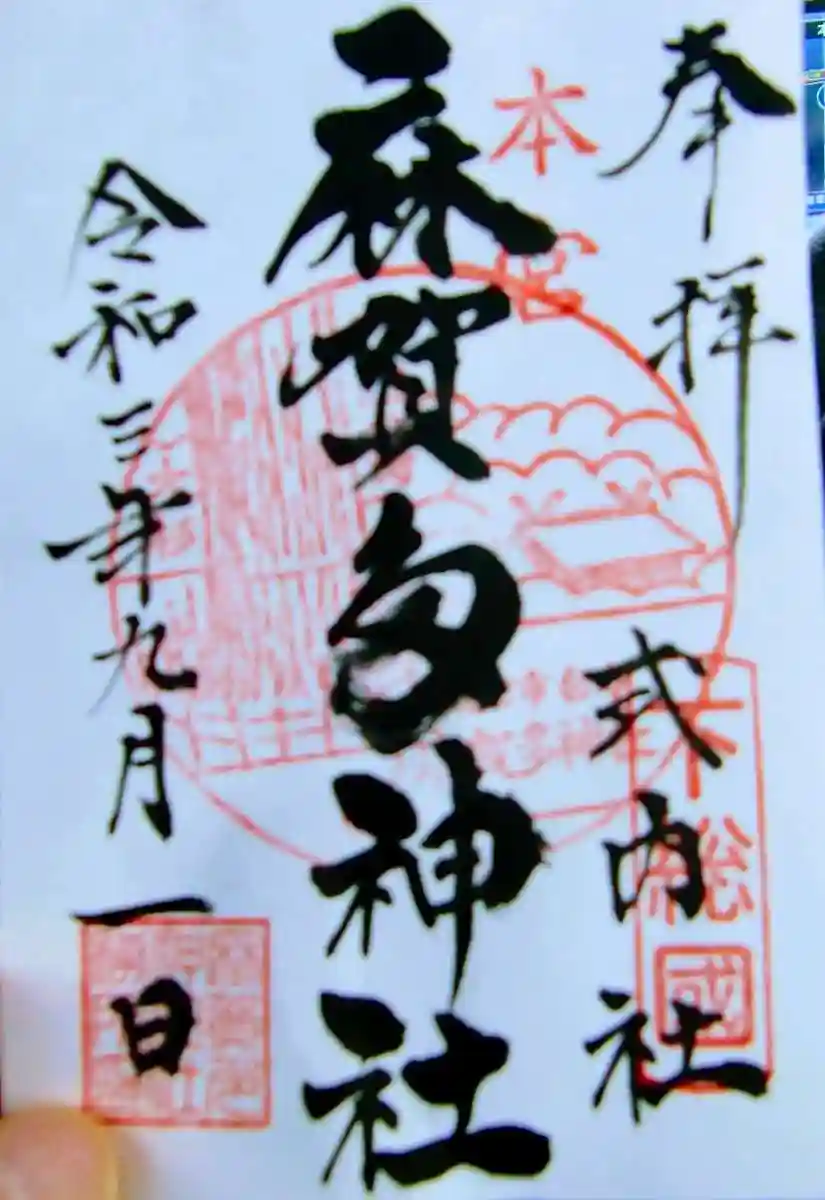 奉拝
式内社
下総国
本宮
麻賀多神社
令和三年九月一日